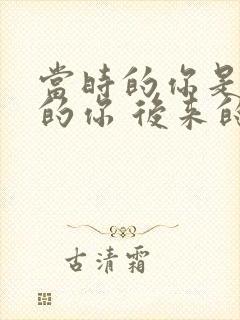 當時的你是
的你 後來的
古清霜